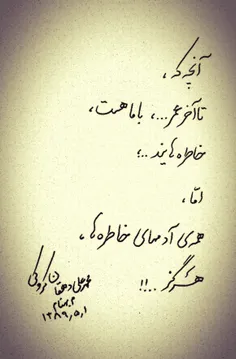 آنچه که ،
تا آخر عمر...، با ما هست ،
خاطره هایند ..؛
امّا ،
همه‌ی آدمهای خاطره ها ،
هرگز ...!!
محمد علی دهقان کروکی
م . بهنام
۱۳۸۹,۵,۱